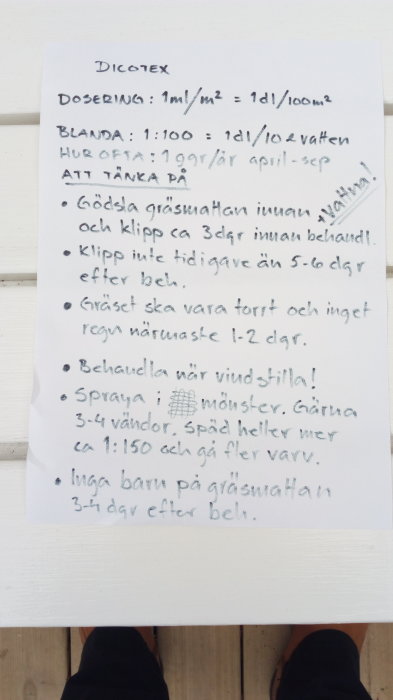 DICOTEX
DOSERING: 1ml/m² = 1dl/100m²
BLANDA: 1:100 = 1dl/10 l vatten
HUR OFTA: 1 ggr/år april-sep
ATT TÄNKA PÅ
• Gödsla gräsmattan innan + Vattna!
och klipp ca 3 dgr innan behandl.
• Klipp inte tidigare än 5-6 dgr
efter beh.
• Gräset ska vara torrt och inget
regn närmaste 1-2 dgr.
• Behandla när vindstilla!
• Spraya i mönster. Gärna
3-4 vändor. Späd heller mer
ca 1:150 och gå fler varv.
• Inga barn på gräsmattan
3-4 dgr efter beh.